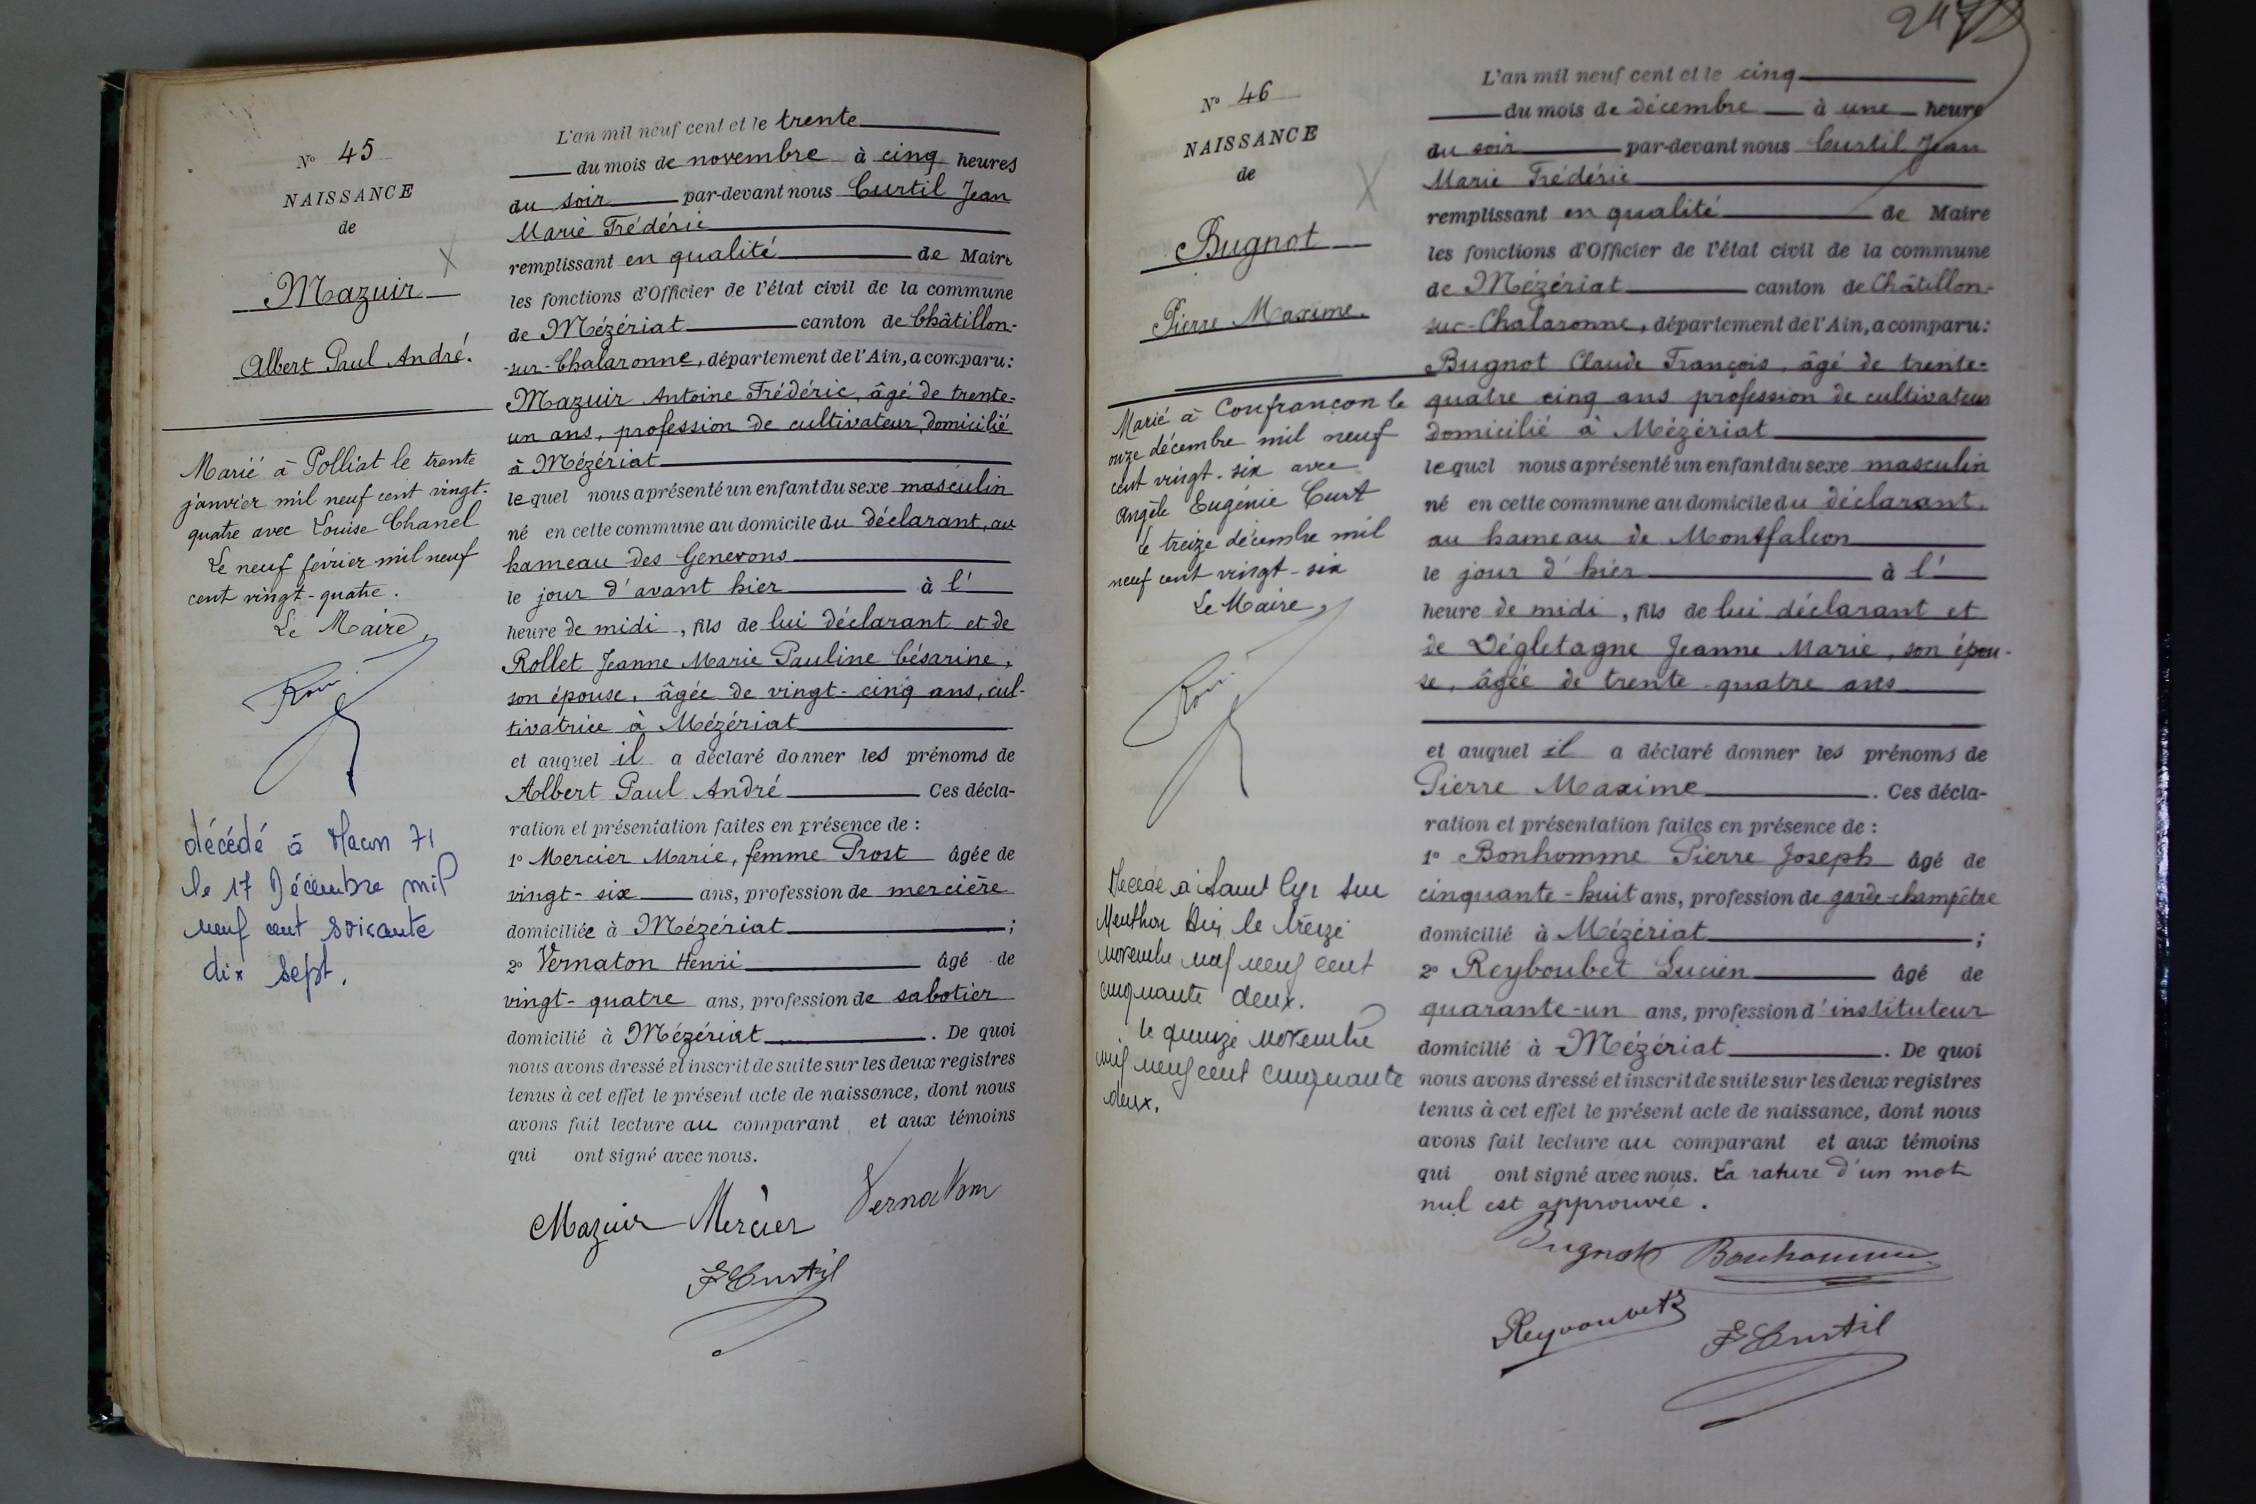 N° 45
NAISSANCE
de
Mazuir
Albert Paul André.
Marié à Polliat le trente
janvier mil neuf cent vingt-
quatre avec Louise Chanel
Le neuf février mil neuf
cent vingt-quatre.
Le Maire,
décédé à Macon 71
le 17 Décembre mil
neuf cent soixante
dix sept.
L'an mil neuf cent et le trente
du mois de novembre à cinq heures
du soir par-devant nous Curtil Jean
Marie Frédéric
remplissant en qualité de Maire
les fonctions d'Officier de l'état civil de la commune
de Mézériat canton de Châtillon-
-sur-Chalaronne, département de l'Ain, a comparu:
Mazuir Antoine Frédéric, âgé de trente-
un ans, profession de cultivateur, domicilié
à Mézériat
lequel nous a présenté un enfant du sexe masculin
né en cette commune au domicile du déclarant, au
hameau des Generons
le jour d'avant hier à l'
heure de midi, fils de lui déclarant et de
Rollet Jeanne Marie Pauline Césarine,
son épouse, âgée de vingt-cinq ans, cul-
tivatrice à Mézériat
et auquel il a déclaré donner les prénoms de
Albert Paul André Ces décla-
ration et présentation faites en présence de :
1° Mercier Marie, femme Prost âgée de
vingt-six ans, profession de mercière
domiciliée à Mézériat ;
2° Vernaton Henri âgé de
vingt-quatre ans, profession de sabotier
domicilié à Mézériat . De quoi
nous avons dressé et inscrit de suite sur les deux registres
tenus à cet effet le présent acte de naissance, dont nous
avons fait lecture au comparant et aux témoins
qui ont signé avec nous.
Mazuir Mercier Vernaton
F Curtil
N° 46
NAISSANCE
de
Bugnot
Pierre Maxime.
Marié à Confrançon le
onze décembre mil neuf
cent vingt-six avec
Angèle Eugénie Curt
le treize décembre mil
neuf cent vingt-six
Le Maire,
Décédé à Saint Cyr sur
Menthon Ain le treize
novembre mil neuf cent
cinquante deux.
le quinze novembre
mil neuf cent cinquante
deux.
L'an mil neuf cent et le cinq
du mois de décembre à une heure
du soir par-devant nous Curtil Jean
Marie Frédéric
remplissant en qualité de Maire
les fonctions d'Officier de l'état civil de la commune
de Mézériat canton de Châtillon-
sur-Chalaronne, département de l'Ain, a comparu:
Bugnot Claude François, âgé de trente-
quatre cinq ans profession de cultivateur
domicilié à Mézériat
lequel nous a présenté un enfant du sexe masculin
né en cette commune au domicile du déclarant,
au hameau de Montfalcon
le jour d'hier à l'
heure de midi, fils de lui déclarant et
de Dégletagne Jeanne Marie, son épou-
se, âgée de trente-quatre ans
et auquel il a déclaré donner les prénoms de
Pierre Maxime . Ces décla-
ration et présentation faites en présence de :
1° Bonhomme Pierre Joseph âgé de
cinquante-huit ans, profession de garde-champêtre
domicilié à Mézériat ;
2° Reyboubet Lucien âgé de
quarante-un ans, profession d'instituteur
domicilié à Mézériat . De quoi
nous avons dressé et inscrit de suite sur les deux registres
tenus à cet effet le présent acte de naissance, dont nous
avons fait lecture au comparant et aux témoins
qui ont signé avec nous. La rature d'un mot
nul est approuvée.
Bugnot Bonhomme
Reyboubet F Curtil